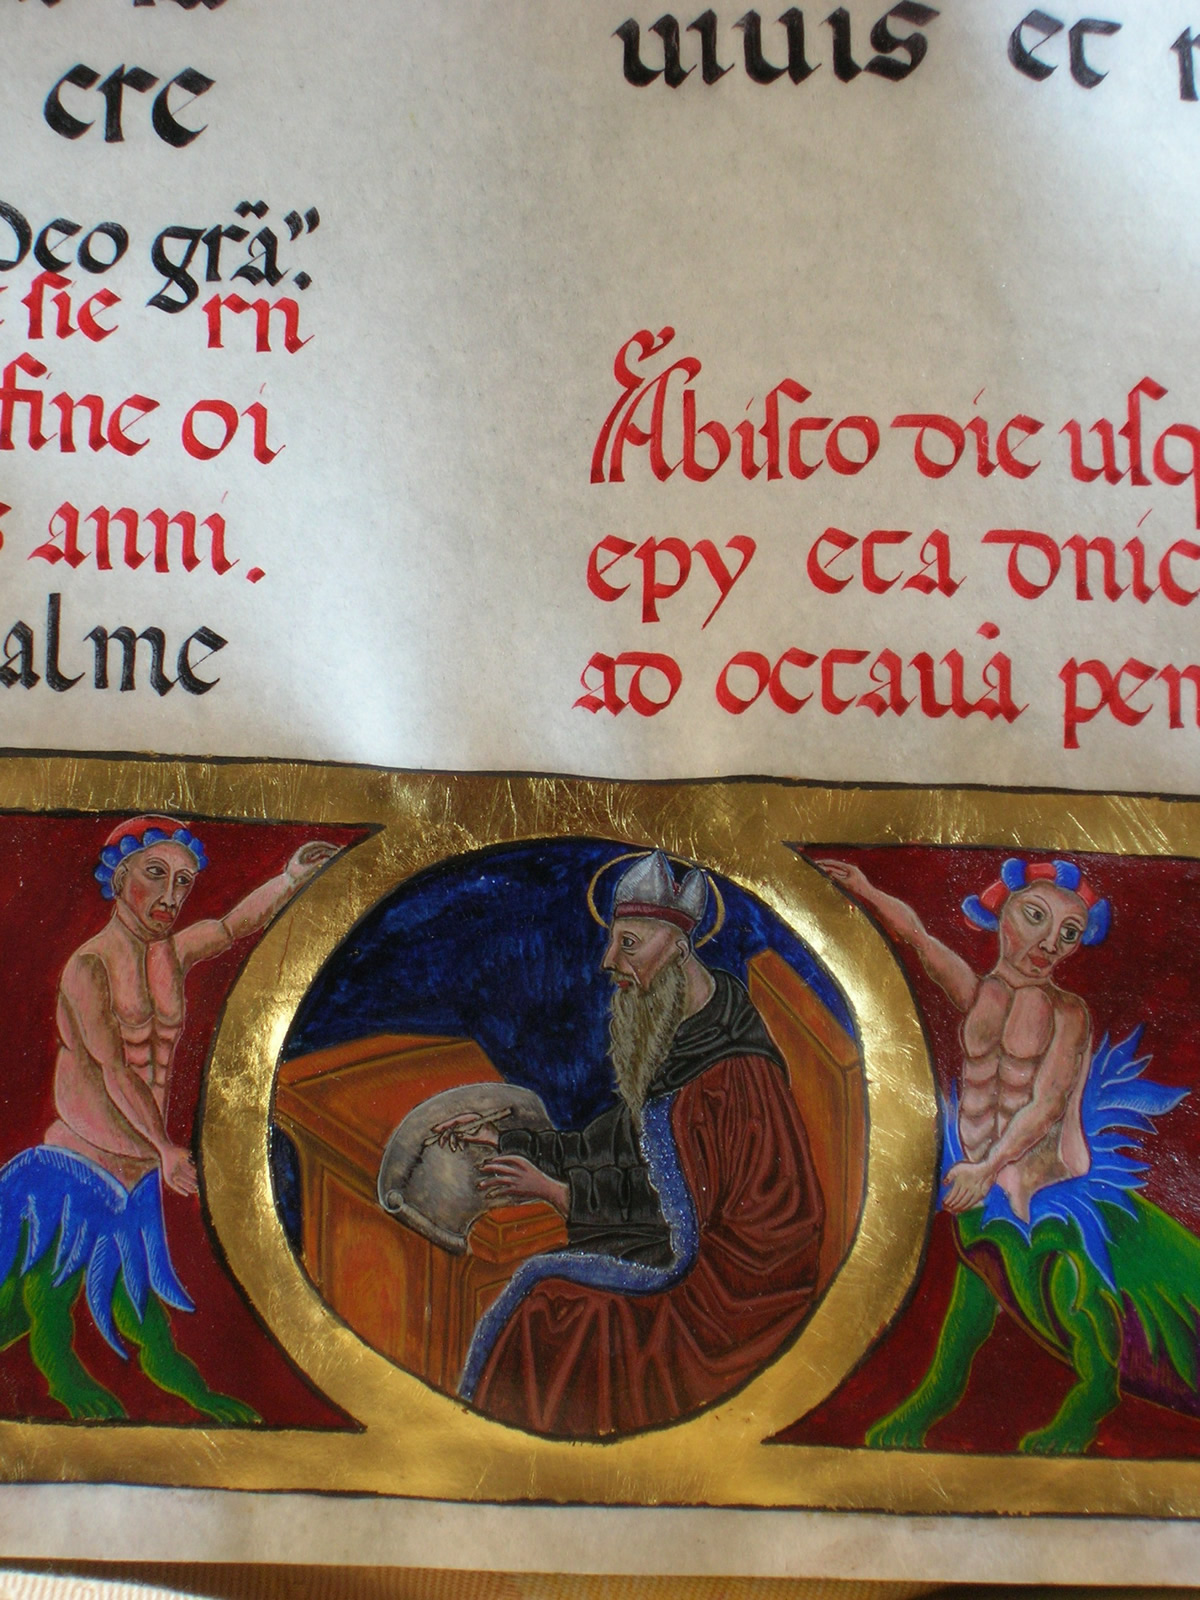 cre
Deo grã".
sie rn
fine oi
s anni.
alme
uiuis et
Abisto die usq
epy eta dnic
ad octauá pen